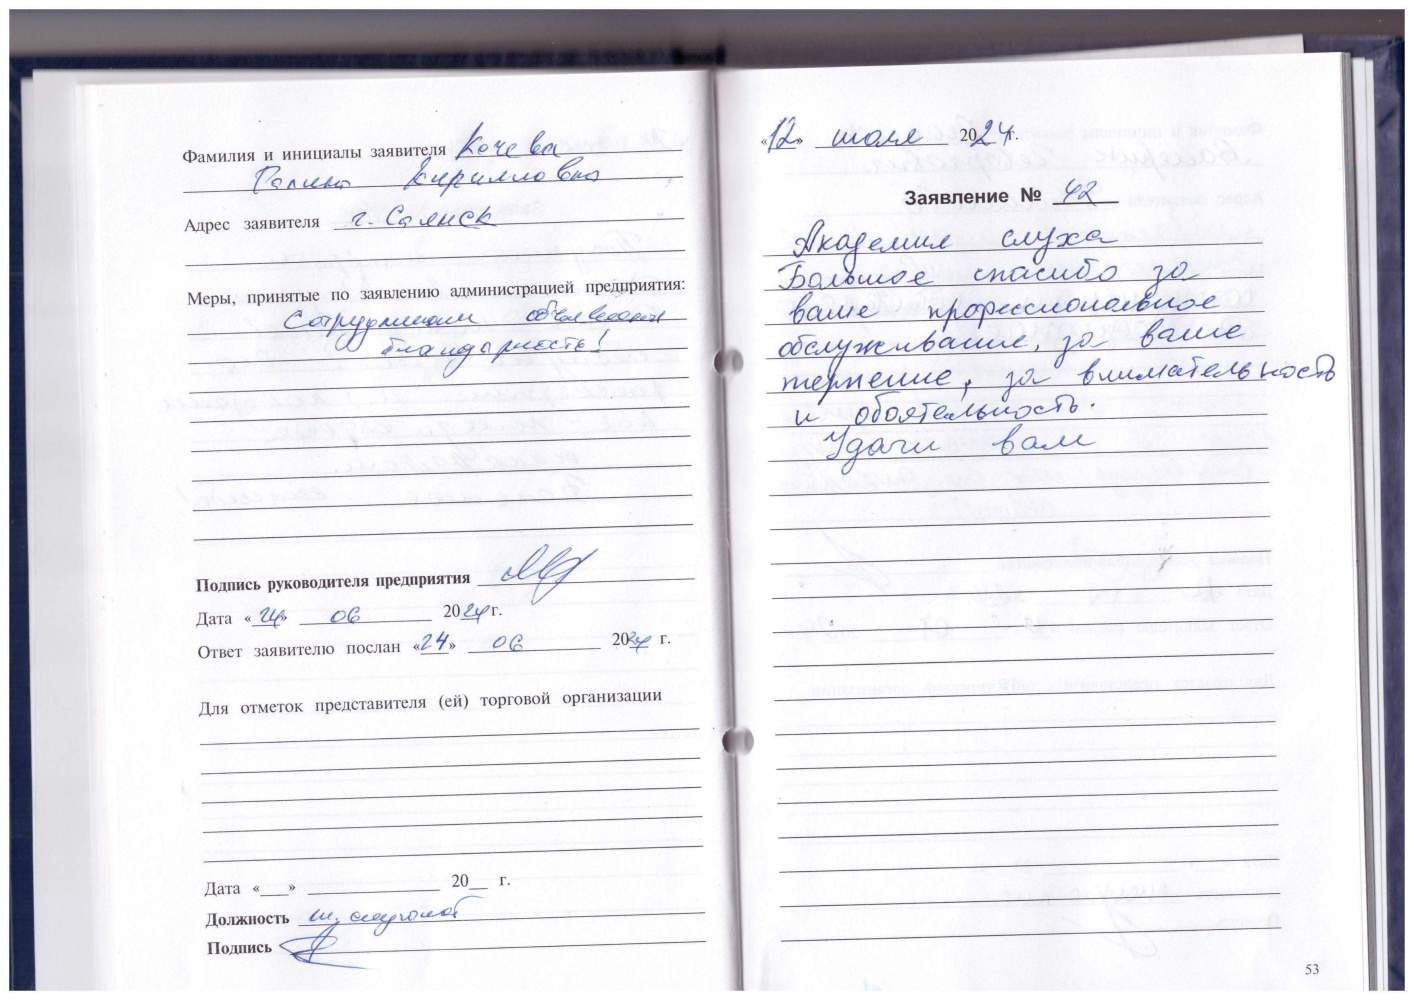 Фамилия и инициалы заявителя Кочева
Галина Кирилловна
Адрес заявителя г. Саянск
Меры, принятые по заявлению администрацией предприятия:
Сотрудникам объявлена
благодарность!
Подпись руководителя предприятия
Дата «24» 06 2024 г.
Ответ заявителю послан «24» 06 2024 г.
Для отметок представителя (ей) торговой организации
Дата «___» 20__ г.
Должность
Подпись
«12» июля 2024 г.
Заявление № 42
Академия слуха
Большое спасибо за
ваше профессиональное
обслуживание, за ваше
терпение, за внимательность
и обоятельность.
Удачи вам
53